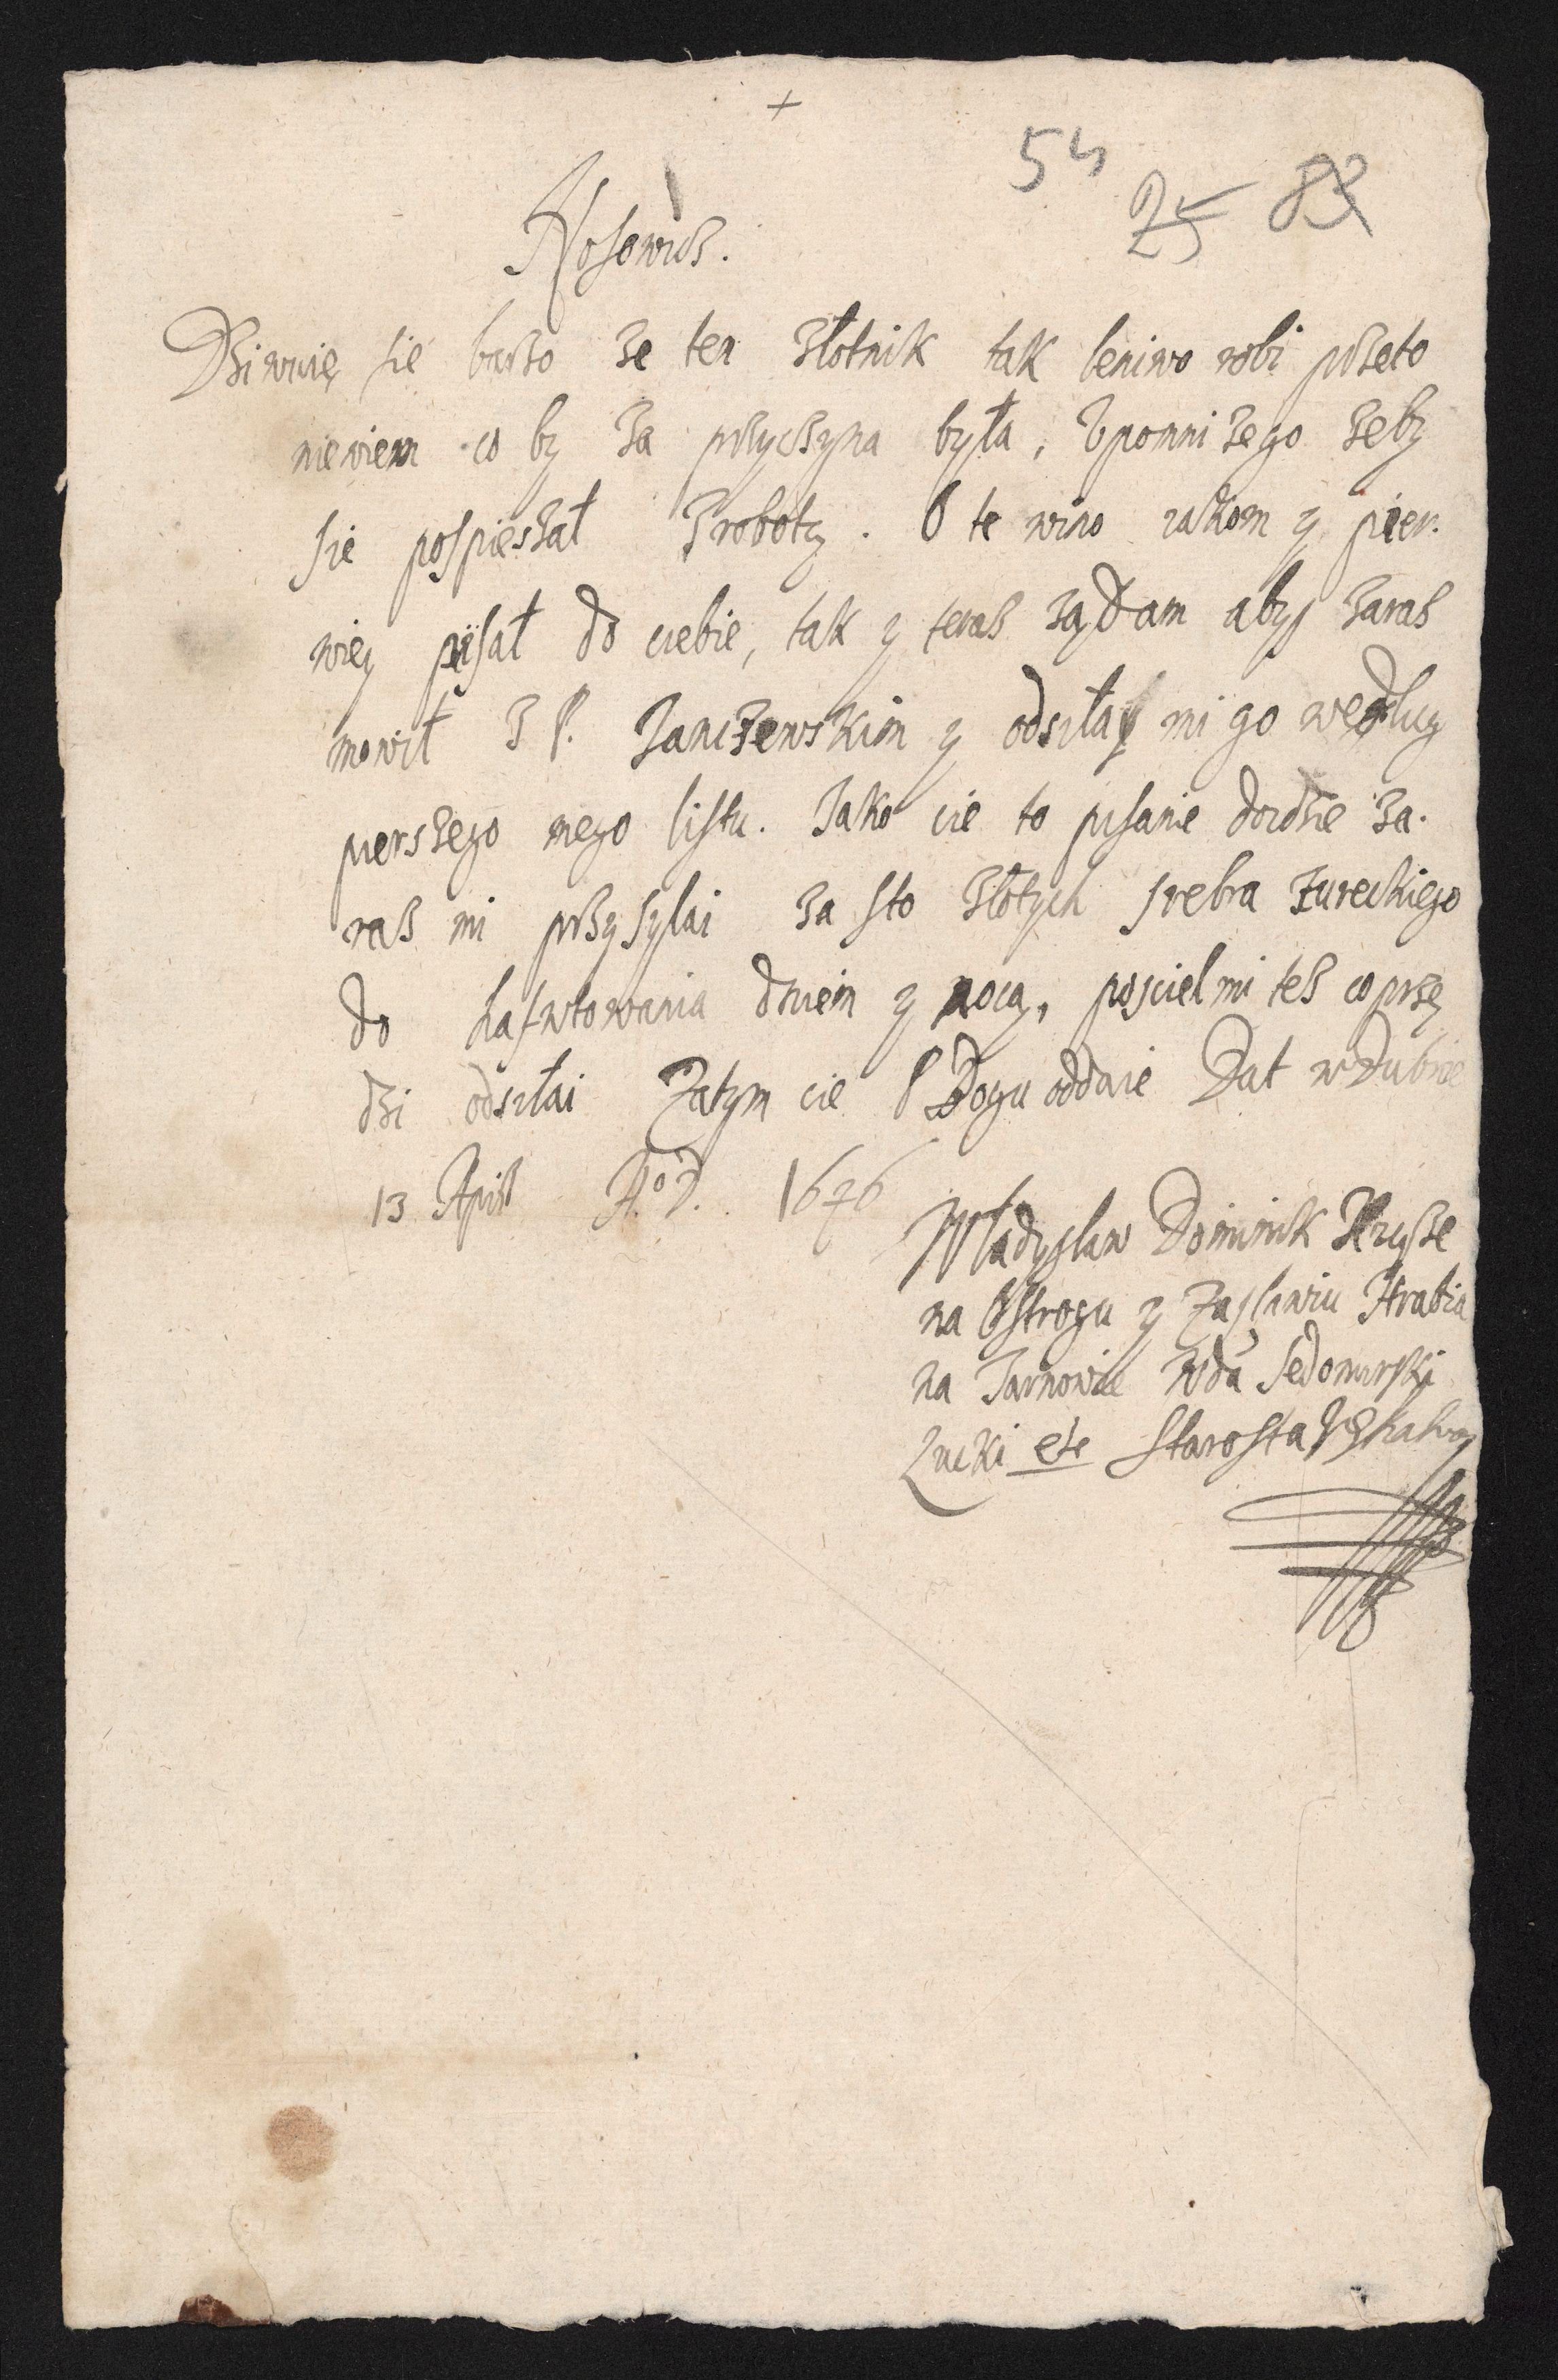 +
54 25 82
Nosowicz.
Dziwuię sie barzo ze ten złotnik tak leniwo robi przeto
niewiem co by za przyczyna była, Upomni zego zeby
sie pospieszał z roboty. O te wino iakom y pier.
wiey pisał do ciebie, tak y teraz ządam abys zaraz
mowił z P. Janczewskim y odsiłay mi go według
pierszego mego listu. Jako cie to pisanie doidzie za.
raz mi przysylai za sto złotych srebra tureckiego
do haftowania dniem y nocą, poscielmi tez co przę
dzi odsiłai Zatym cie P Bogu oddaie Dat w Dubnie
13 April A.o D. 1646
Władysław Dominik Xrzysze
na Ostrogu y Zasławiu Hrabia
na Tarnowie Wda Sędomirski
Łucki etc Starosta